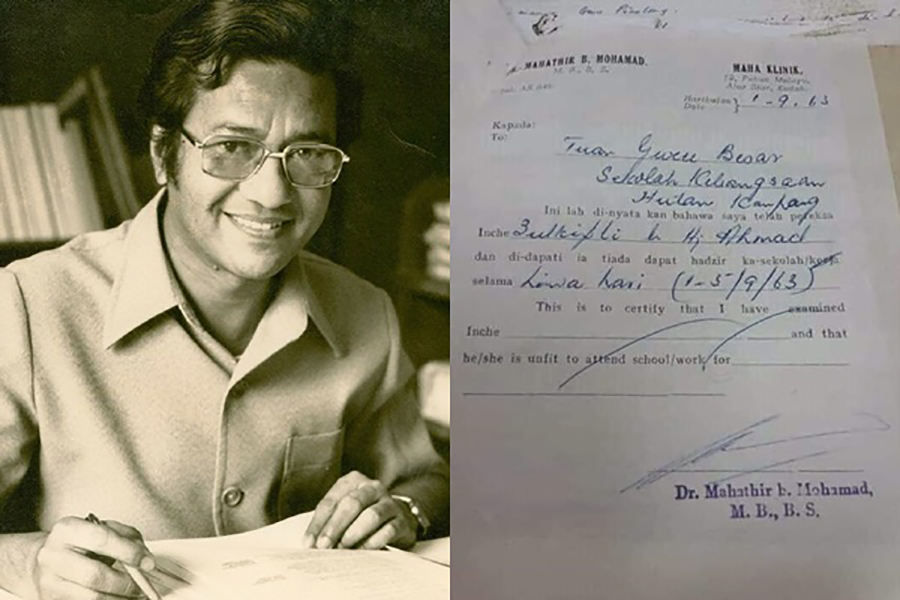 MAHATHIR B. MOHAMAD.
M. B., B. S.
MAHA KLINIK,
Alor Star, Kedah.
Haribulan
Date } 1-9.63
Kapada:
To:
Tuan Guru Besar
Sekolah Kebangsaan
Hutan Kampung
Ini lah di-nyata kan bahawa saya telah pereksa
Inche Zulkifli b Hj Ahmad
dan di-dapati ia tiada dapat hadzir ka-sekolah/kerja
selama Lima hari (1-5/9/63)
This is to certify that I have examined
Inche and that
he/she is unfit to attend school/work for
Dr. Mahathir b. Mohamad,
M. B., B. S.